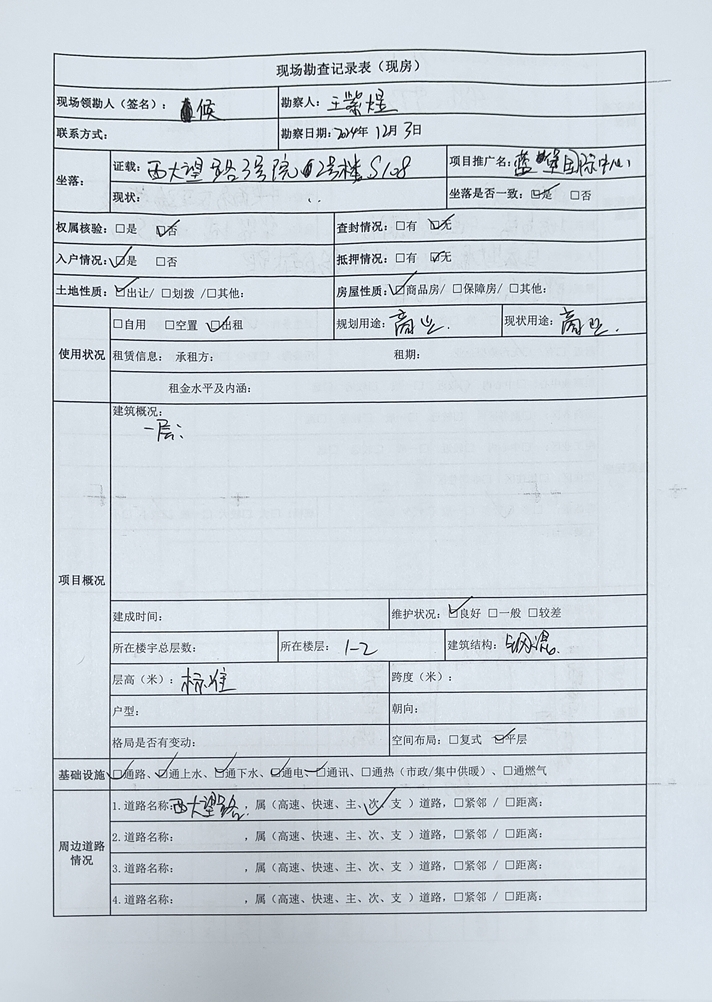 现场勘查记录表（现房）
现场领勘人（签名）： 候 勘察人：王荣煜
联系方式： 勘察日期：2024年12月3日
坐落： 证载：西大望路3号院2号楼S108 项目推广名：蓝堡国际中心
现状： 坐落是否一致：☑是 □否
权属核验：□是 ☑否 查封情况：□有 ☑无
入户情况：☑是 □否 抵押情况：□有 ☑无
土地性质：☑出让/ □划拨 /□其他： 房屋性质：☑商品房/ □保障房/ □其他：
使用状况 □自用 □空置 ☑出租 规划用途：商业. 现状用途：商业.
租赁信息： 承租方： 租期：
租金水平及内涵：
项目概况 建筑概况：
一层：
建成时间： 维护状况：☑良好 □一般 □较差
所在楼宇总层数： 所在楼层：1-2 建筑结构：钢混.
层高（米）：标准 跨度（米）：
户型： 朝向：
格局是否有变动： 空间布局：□复式 ☑平层
基础设施 ☑通路、☑通上水、☑通下水、☑通电、☑通讯、□通热（市政/集中供暖）、□通燃气
周边道路情况 1.道路名称：西大望路，属（高速、快速、主、次✓、支 ）道路，□紧邻 / □距离：
2.道路名称： ，属（高速、快速、主、次、支 ）道路，□紧邻 / □距离：
3.道路名称： ，属（高速、快速、主、次、支 ）道路，□紧邻 / □距离：
4.道路名称： ，属（高速、快速、主、次、支 ）道路，□紧邻 / □距离：